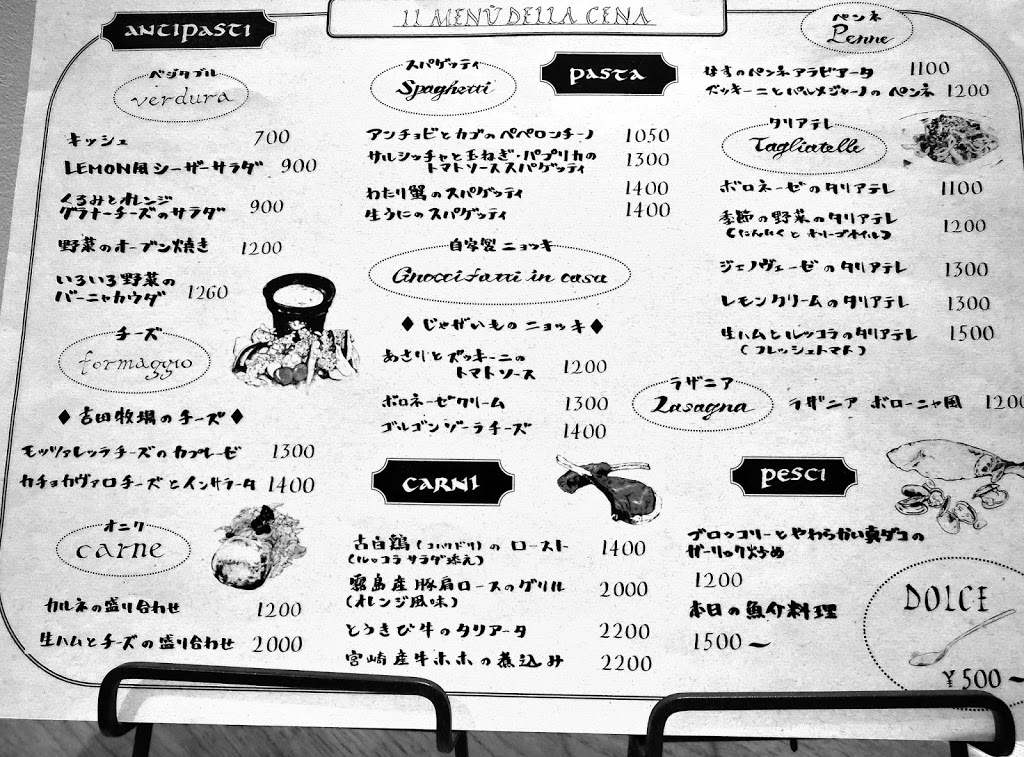 Il MENÙ DELLA CENA
ANTIPASTI
ベジタブル
verdura
キッシュ 700
LEMON風シーザーサラダ 900
くるみとオレンジ
グラナーチーズのサラダ 900
野菜のオーブン焼き 1200
いろいろ野菜の
バーニャカウダ 1260
チーズ
formaggio
◆吉田牧場のチーズ◆
モッツァレッラチーズのカプレーゼ 1300
カチョカヴァロチーズとインサラータ 1400
オニク
carne
カルネの盛り合わせ 1200
生ハムとチーズの盛り合わせ 2000
PASTA
スパゲッティ
Spaghetti
アンチョビとカブのペペロンチーノ 1050
サルシッチャと玉ねぎ・パプリカの
トマトソーススパゲッティ 1300
わたり蟹のスパゲッティ 1400
生うにのスパゲッティ 1400
自家製ニョッキ
Gnocci fatti in casa
◆じゃがいものニョッキ◆
あさりとズッキーニの
トマトソース 1200
ボロネーゼクリーム 1300
ゴルゴンゾーラチーズ 1400
CARNI
古白鶏(コハクドリ)のロースト
(ルッコラサラダ添え) 1400
霧島産豚肩ロースのグリル
(オレンジ風味) 2000
とうきび牛のタリアータ 2200
宮崎産牛ホホの煮込み 2200
ペンネ
Penne
なすのペンネアラビアータ 1100
ズッキーニとパルメジャーノのペンネ 1200
タリアテレ
Tagliatelle
ボロネーゼのタリアテレ 1100
季節の野菜のタリアテレ
(にんにくとオリーブオイル) 1200
ジェノヴェーゼのタリアテレ 1300
レモンクリームのタリアテレ 1300
生ハムとルッコラのタリアテレ
(フレッシュトマト) 1500
ラザニア
Lasagna
ラザニア ボローニャ風 1200
PESCI
ブロッコリーとやわらかい真ダコの
ガーリック炒め
1200
本日の魚介料理
1500～
DOLCE
¥500～